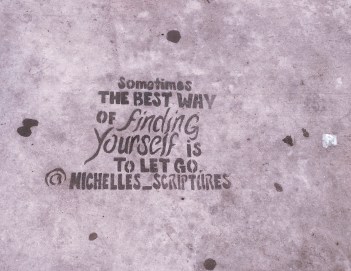 Sometimes
THE BEST WAY
OF finding
Yourself is
TO LET GO.
@NICHELLES_SCRIPTURES